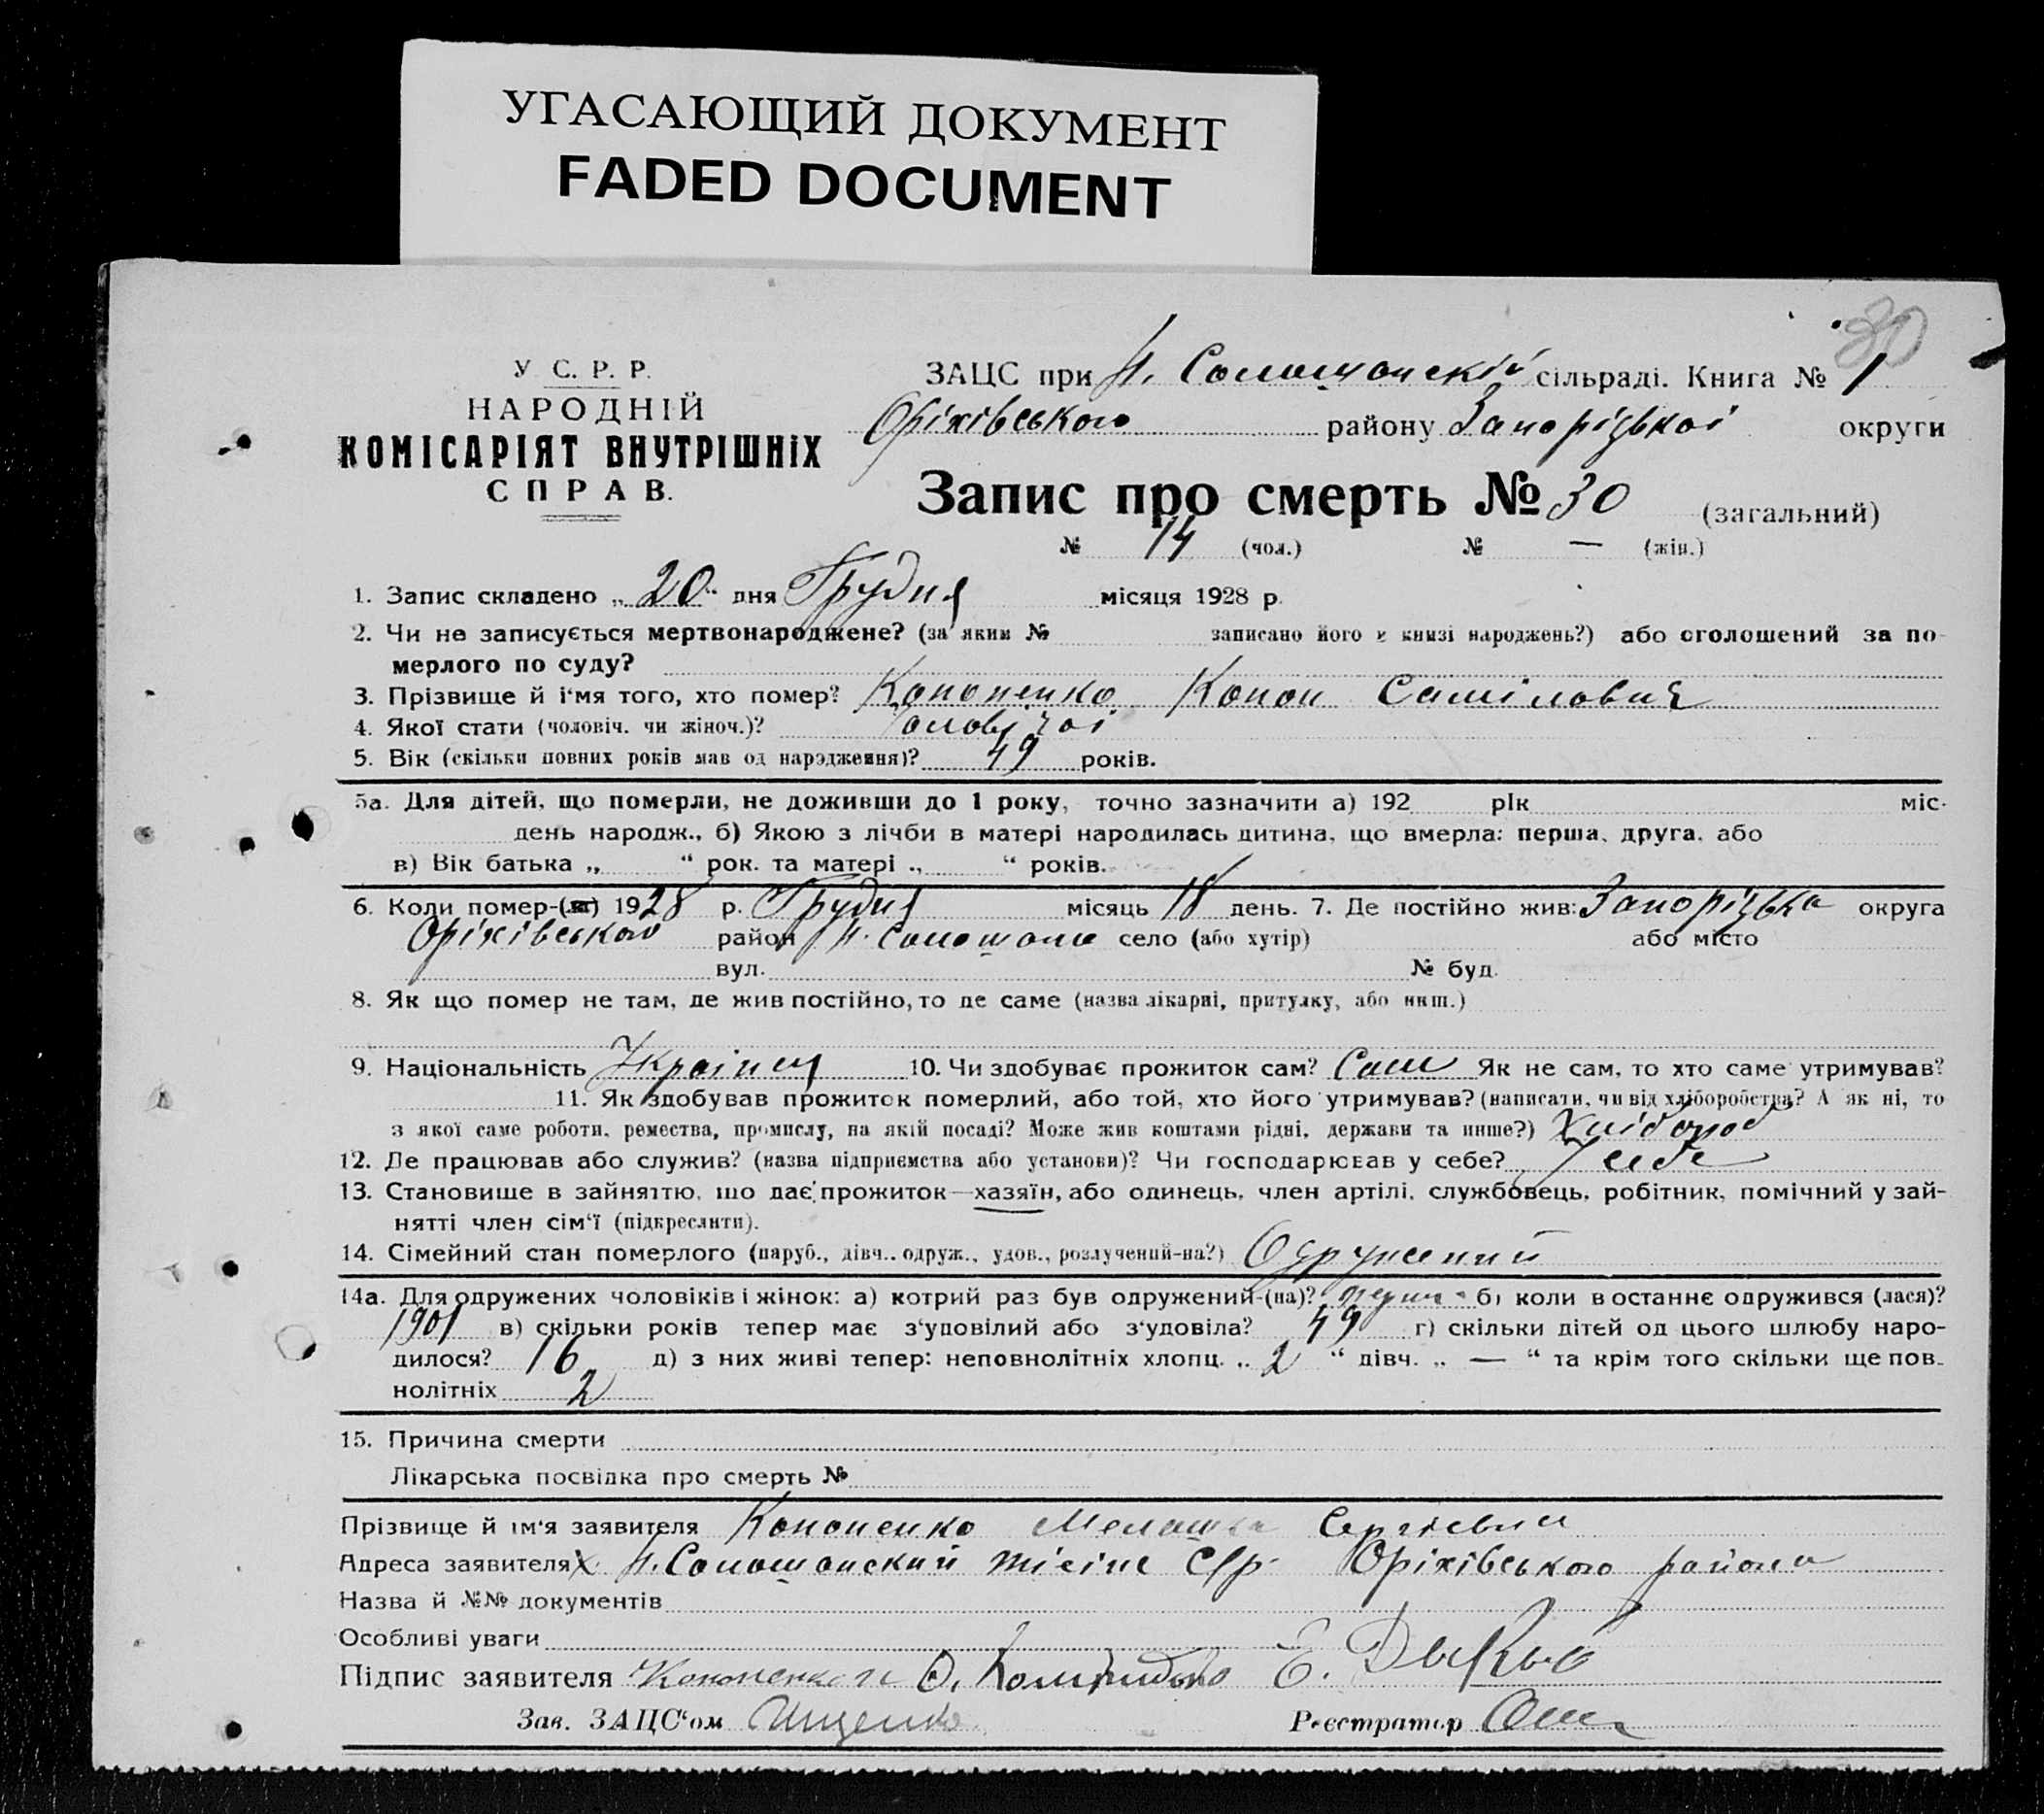 УГАСАЮЩИЙ ДОКУМЕНТ
FADED DOCUMENT
30
У С. Р. Р.
НАРОДНІЙ
КОМІСАРІЯТ ВНУТРІШНІХ
СПРАВ.
ЗАЦС при сільраді. Книга № 1
Оріхівського району Запорізької округи
Запис про смерть № 30 (загальний)
№ 14 (чол.) № — (жін.)
1. Запис складено „ 20 " дня Грудня місяця 1928 р.
2. Чи не записується мертвонароджене? (за яким № записано його в книзі народжень?) або оголошений за по-
мерлого по суду?
3. Прізвище й і'мя того, хто помер? Кононенко Конон Самілович
4. Якої стати (чоловіч. чи жіноч.)? Чоловічої
5. Вік (скільки повних років мав од народження)? 49 років.
5а. Для дітей, що померли, не доживши до 1 року, точно зазначити а) 192 рік міс.
день народж., б) Якою з лічби в матері народилась дитина, що вмерла: перша, друга, або
в) Вік батька „ " рок. та матері „ " років.
6. Коли помер-(ла) 1928 р. Грудня місяць 18 день. 7. Де постійно жив: Запорізька округа
Оріхівського район село (або хутір) або місто
вул. № буд.
8. Як що помер не там, де жив постійно, то де саме (назва лікарні, притулку, або инш.)
9. Національність Украінця 10. Чи здобуває прожиток сам? Сам Як не сам, то хто саме утримував?
11. Як здобував прожиток померлий, або той, хто його утримував? (написати, чи від хліборобства? А як ні, то
з якої саме роботи, ремества, промислу, на якій посаді? Може жив коштами рідні, держави та инше?) Хлібороб
12. Де працював або служив? (назва підприємства або установи)? Чи господарював у себе? У себе
13. Становище в зайняттю, що дає прожиток—хазяїн, або одинець, член артілі, службовець, робітник, помічний у зай-
нятті член сім'ї (підкреслити).
14. Сімейний стан померлого (паруб., дівч., одруж., удов., розлучений-на?) Одружений
14а. Для одружених чоловіків і жінок: а) котрий раз був одружений-(на)? б) коли востаннє одружився (лася)?
1901 в) скільки років тепер має з'уповілий або з'удовіла? 49 г) скільки дітей од цього шлюбу наро-
дилося? 16 д) з них живі тепер: неповнолітніх хлопц. „ 2 " дівч. „ — " та крім того скільки ще пов-
нолітніх 2
15. Причина смерти
Лікарська посвідка про смерть №
Прізвище й ім'я заявителя Кононенко Сергієвна
Адреса заявителя Оріхівського района
Назва й №№ документів
Особливі уваги
Підпис заявителя
Зав. ЗАЦС'ом Ищенко Реєстратор